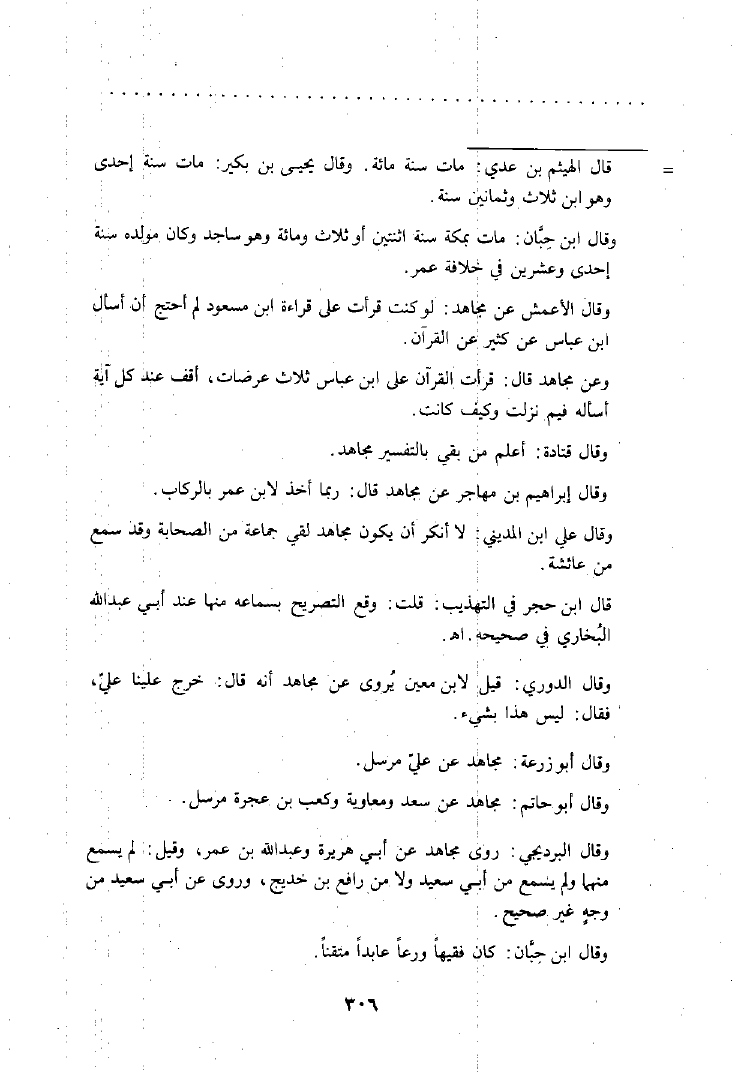 = قال الهيثم بن عدي: مات سنة مائة. وقال يحيى بن بكير: مات سنة إحدى
وهو ابن ثلاث وثمانين سنة.
وقال ابن حِبَّان: مات بمكة سنة اثنتين أو ثلاث ومائة وهو ساجد وكان مولده سنة
إحدى وعشرين في خلافة عمر.
وقال الأعمش عن مجاهد: لو كنت قرأت على قراءة ابن مسعود لم أحتج أن أسأل
ابن عباس عن كثير عن القرآن.
وعن مجاهد قال: قرأت القرآن على ابن عباس ثلاث عرضات، أقف عند كل آية
أسأله فيم نزلت وكيف كانت.
وقال قتادة: أعلم من بقي بالتفسير مجاهد.
وقال إبراهيم بن مهاجر عن مجاهد قال: ربما أخذ لابن عمر بالركاب.
وقال علي ابن المديني: لا أنكر أن يكون مجاهد لقي جماعة من الصحابة وقد سمع
من عائشة.
قال ابن حجر في التهذيب: قلت: وقع التصريح بسماعه منها عند أبي عبدالله
البُخاري في صحيحه. اهـ.
وقال الدوري: قيل لابن معين يُروى عن مجاهد أنه قال: خرج علينا عليّ،
فقال: ليس هذا بشيء.
وقال أبو زرعة: مجاهد عن عليّ مرسل.
وقال أبو حاتم: مجاهد عن سعد ومعاوية وكعب بن عجرة مرسل.
وقال البرديجي: روى مجاهد عن أبي هريرة وعبدالله بن عمر، وقيل: لم يسمع
منهما ولم يسمع من أبي سعيد ولا من رافع بن خديج، وروى عن أبي سعيد من
وجهٍ غير صحيح.
وقال ابن حِبَّان: كان فقيهاً ورعاً عابداً متقناً.
٣٠٦